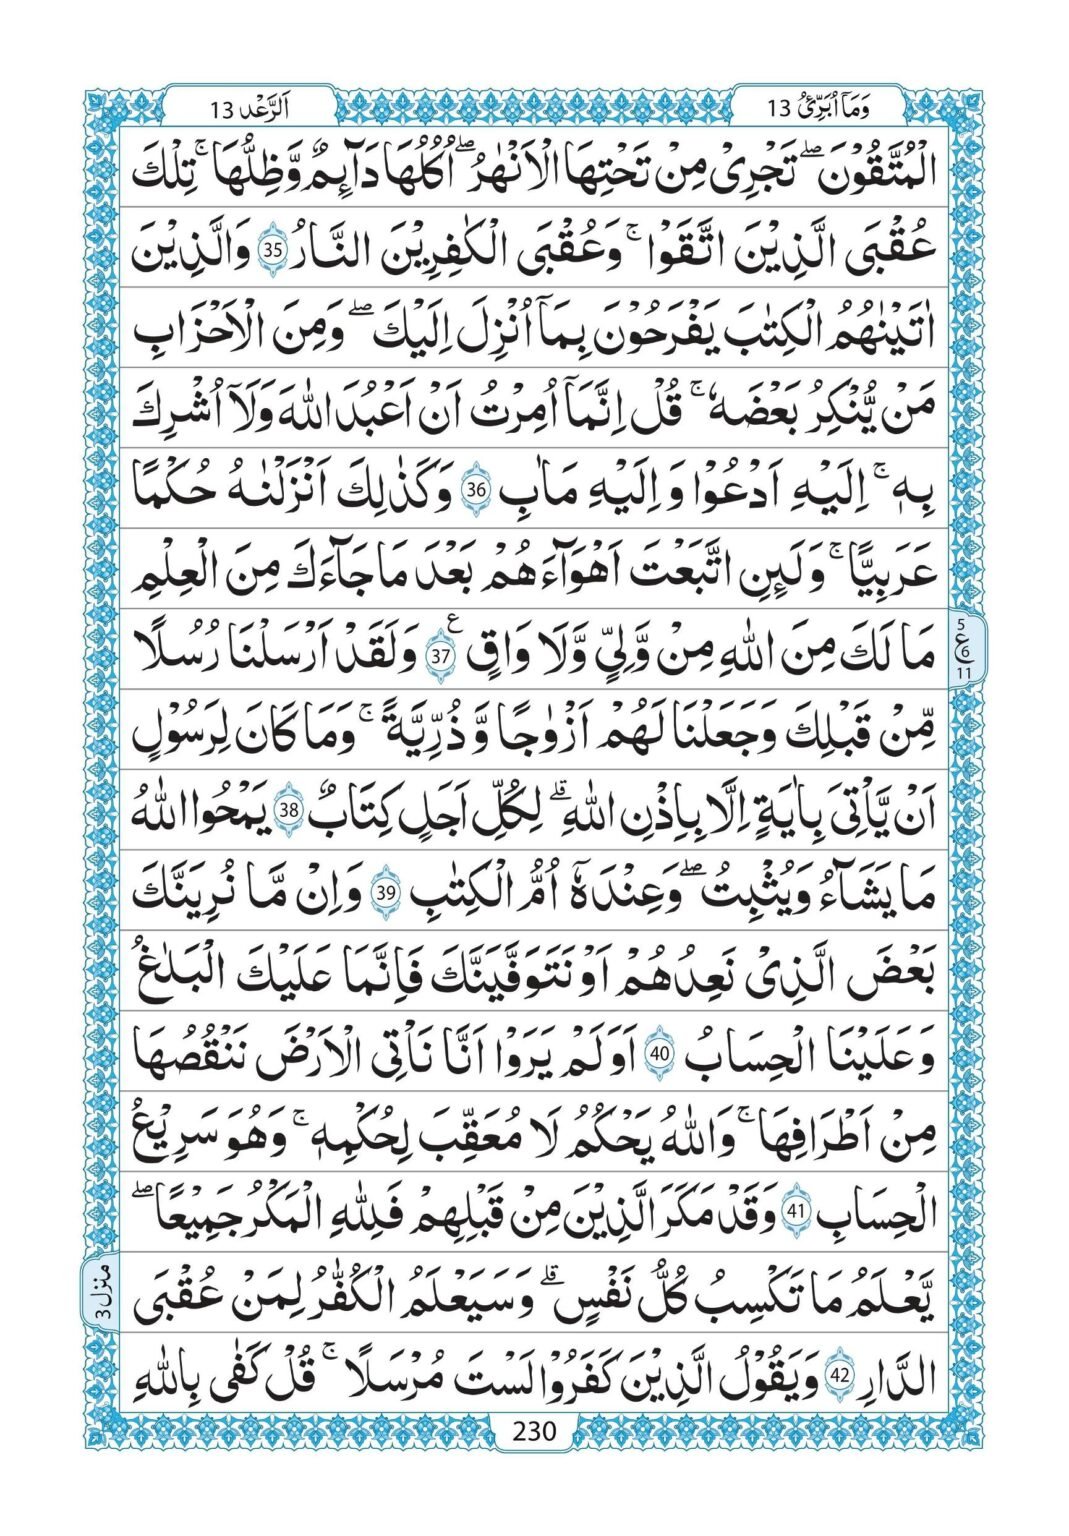 وَمَاۤ اُبَرِّئُ 13
اَلرَّعْد 13
الْمُتَّقُوْنَ ؕ تَجْرِیْ مِنْ تَحْتِهَا الْاَنْهٰرُ ؕ اُكُلُهَا دَآىِٕمٌ وَّظِلُّهَا ۚ تِلْكَ
عُقْبَی الَّذِیْنَ اتَّقَوْا ۚ وَعُقْبَی الْكٰفِرِیْنَ النَّارُ 35 وَالَّذِیْنَ
اٰتَیْنٰهُمُ الْكِتٰبَ یَفْرَحُوْنَ بِمَاۤ اُنْزِلَ اِلَیْكَ ۖ وَمِنَ الْاَحْزَابِ
مَنْ یُّنْكِرُ بَعْضَهٗ ۚ قُلْ اِنَّمَاۤ اُمِرْتُ اَنْ اَعْبُدَ اللّٰهَ وَلَاۤ اُشْرِكَ
بِهٖ ۚ اِلَیْهِ اَدْعُوْا وَاِلَیْهِ مَاٰبِ 36 وَكَذٰلِكَ اَنْزَلْنٰهُ حُكْمًا
عَرَبِیًّا ۚ وَلَىِٕنِ اتَّبَعْتَ اَهْوَآءَهُمْ بَعْدَ مَا جَآءَكَ مِنَ الْعِلْمِ
مَا لَكَ مِنَ اللّٰهِ مِنْ وَّلِیٍّ وَّلَا وَاقٍ 37 ع وَلَقَدْ اَرْسَلْنَا رُسُلًا
5 ع 6 11
مِّنْ قَبْلِكَ وَجَعَلْنَا لَهُمْ اَزْوٰجًا وَّذُرِّیَّةً ۚ وَمَا كَانَ لِرَسُوْلٍ
اَنْ یَّاْتِیَ بِاٰیَةٍ اِلَّا بِاِذْنِ اللّٰهِ ۗ لِكُلِّ اَجَلٍ كِتَابٌ 38 یَمْحُوا اللّٰهُ
مَا یَشَآءُ وَیُثْبِتُ ۖ وَعِنْدَهٗۤ اُمُّ الْكِتٰبِ 39 وَاِنْ مَّا نُرِیَنَّكَ
بَعْضَ الَّذِیْ نَعِدُهُمْ اَوْ نَتَوَفَّیَنَّكَ فَاِنَّمَا عَلَیْكَ الْبَلٰغُ
وَعَلَیْنَا الْحِسَابُ 40 اَوَلَمْ یَرَوْا اَنَّا نَاْتِی الْاَرْضَ نَنْقُصُهَا
مِنْ اَطْرَافِهَا ۚ وَاللّٰهُ یَحْكُمُ لَا مُعَقِّبَ لِحُكْمِهٖ ۚ وَهُوَ سَرِیْعُ
الْحِسَابِ 41 وَقَدْ مَكَرَ الَّذِیْنَ مِنْ قَبْلِهِمْ فَلِلّٰهِ الْمَكْرُ جَمِیْعًا ۖ
یَّعْلَمُ مَا تَكْسِبُ كُلُّ نَفْسٍ ۗ وَسَیَعْلَمُ الْكُفّٰرُ لِمَنْ عُقْبَی
منزل 3
الدَّارِ 42 وَیَقُوْلُ الَّذِیْنَ كَفَرُوْا لَسْتَ مُرْسَلًا ۚ قُلْ كَفٰی بِاللّٰهِ
230